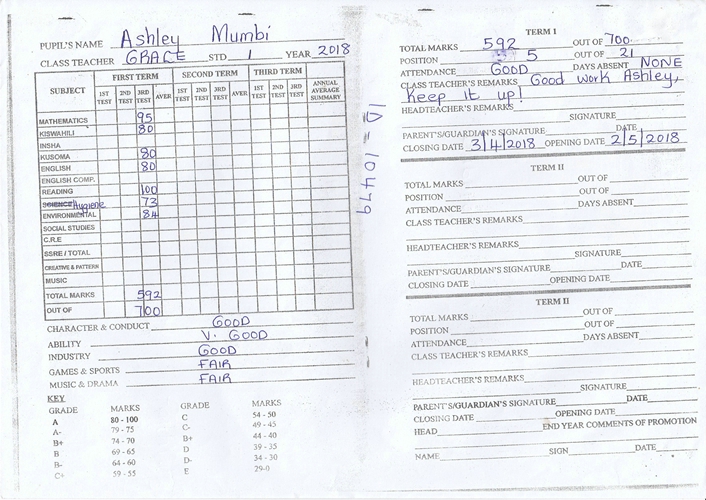 PUPIL'S NAME Ashley Mumbi
CLASS TEACHER GRACE STD 1 YEAR 2018
SUBJECT FIRST TERM SECOND TERM THIRD TERM ANNUAL AVERAGE SUMMARY
1ST TEST 2ND TEST 3RD TEST AVER 1ST TEST 2ND TEST 3RD TEST AVER 1ST TEST 2ND TEST 3RD TEST
MATHEMATICS 95
KISWAHILI 80
INSHA
KUSOMA 80
ENGLISH 80
ENGLISH COMP.
READING 100
SCIENCE Hygiene 73
ENVIRONMENTAL 84
SOCIAL STUDIES
C.R.E
SSRE / TOTAL
CREATIVE & PATTERN
MUSIC
TOTAL MARKS 592
OUT OF 700
CHARACTER & CONDUCT GOOD
ABILITY V. GOOD
INDUSTRY GOOD
GAMES & SPORTS FAIR
MUSIC & DRAMA FAIR
KEY
GRADE MARKS GRADE MARKS
A 80 - 100 C 54 - 50
A- 79 - 75 C- 49 - 45
B+ 74 - 70 B+ 44 - 40
B 69 - 65 D 39 - 35
B- 64 - 60 D- 34 - 30
C+ 59 - 55 E 29-0
ID = 10479
TERM 1
TOTAL MARKS 592 OUT OF 700
POSITION 5 OUT OF 21
ATTENDANCE GOOD DAYS ABSENT NONE
CLASS TEACHER'S REMARKS Good work Ashley,
keep it up!
HEADTEACHER'S REMARKS
SIGNATURE
PARENT'S/GUARDIAN'S SIGNATURE DATE
CLOSING DATE 3/4/2018 OPENING DATE 2/5/2018
TERM II
TOTAL MARKS OUT OF
POSITION OUT OF
ATTENDANCE DAYS ABSENT
CLASS TEACHER'S REMARKS
HEADTEACHER'S REMARKS
SIGNATURE
PARENT'S/GUARDIAN'S SIGNATURE DATE
CLOSING DATE OPENING DATE
TERM II
TOTAL MARKS OUT OF
POSITION OUT OF
ATTENDANCE DAYS ABSENT
CLASS TEACHER'S REMARKS
HEADTEACHER'S REMARKS
SIGNATURE
PARENT'S/GUARDIAN'S SIGNATURE DATE
CLOSING DATE OPENING DATE
HEAD END YEAR COMMENTS OF PROMOTION
NAME SIGN DATE